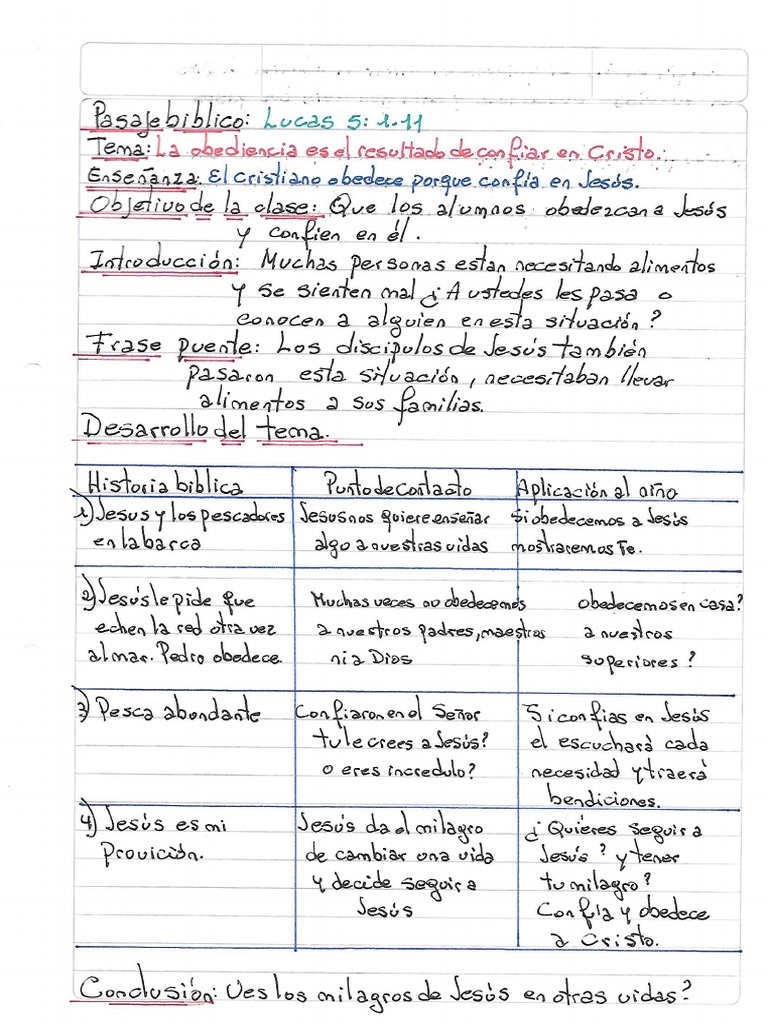 Pasaje biblico: Lucas 5: 1-11
Tema: La obediencia es el resultado de confiar en Cristo.
Enseñanza: El Cristiano obedece porque confía en Jesús.
Objetivo de la clase: Que los alumnos obedezcan a Jesús
y confien en él.
Introducción: Muchas personas estan necesitando alimentos
y se sienten mal ¿A ustedes les pasa o
conocen a alguien en esta situación?
Frase puente: Los discipulos de Jesús también
pasaron esta situación, necesitaban llevar
alimentos a sus familias.
Desarrollo del tema.
Historia biblica
Punto de contacto
Aplicación al niño
1) Jesus y los pescadores
en la barca
Jesus nos quiere enseñar
algo a nuestras vidas
Si obedecemos a Jesús
mostraremos Fe.
2) Jesús le pide que
echen la red otra vez
al mar. Pedro obedece.
Muchas veces no obedecemos
a nuestros padres, maestros
ni a Dios
obedecemos en casa?
a nuestros
superiores?
3) Pesca abundante
Confiaron en el Señor
tu le crees a Jesús?
o eres incredulo?
Si confias en Jesús
el escuchará cada
necesidad y traerá
bendiciones.
4) Jesús es mi
provición.
Jesús da el milagro
de cambiar una vida
y decide seguir a
Jesús
¿Quieres seguir a
Jesús? y tener
tu milagro?
Confía y obedece
a Cristo.
Conclusión: Ves los milagros de Jesús en otras vidas?